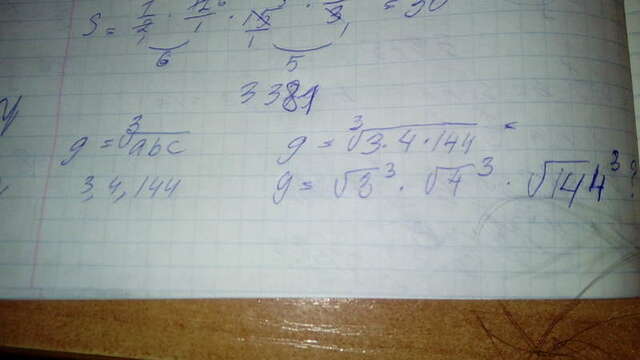 S = 1/2 · 12/1 · 15/1 · = 30
6 5
3381
g = ∛abc g = ∛3·4·144 =
3,4,144 g = √3³ · √4³ · √144³?